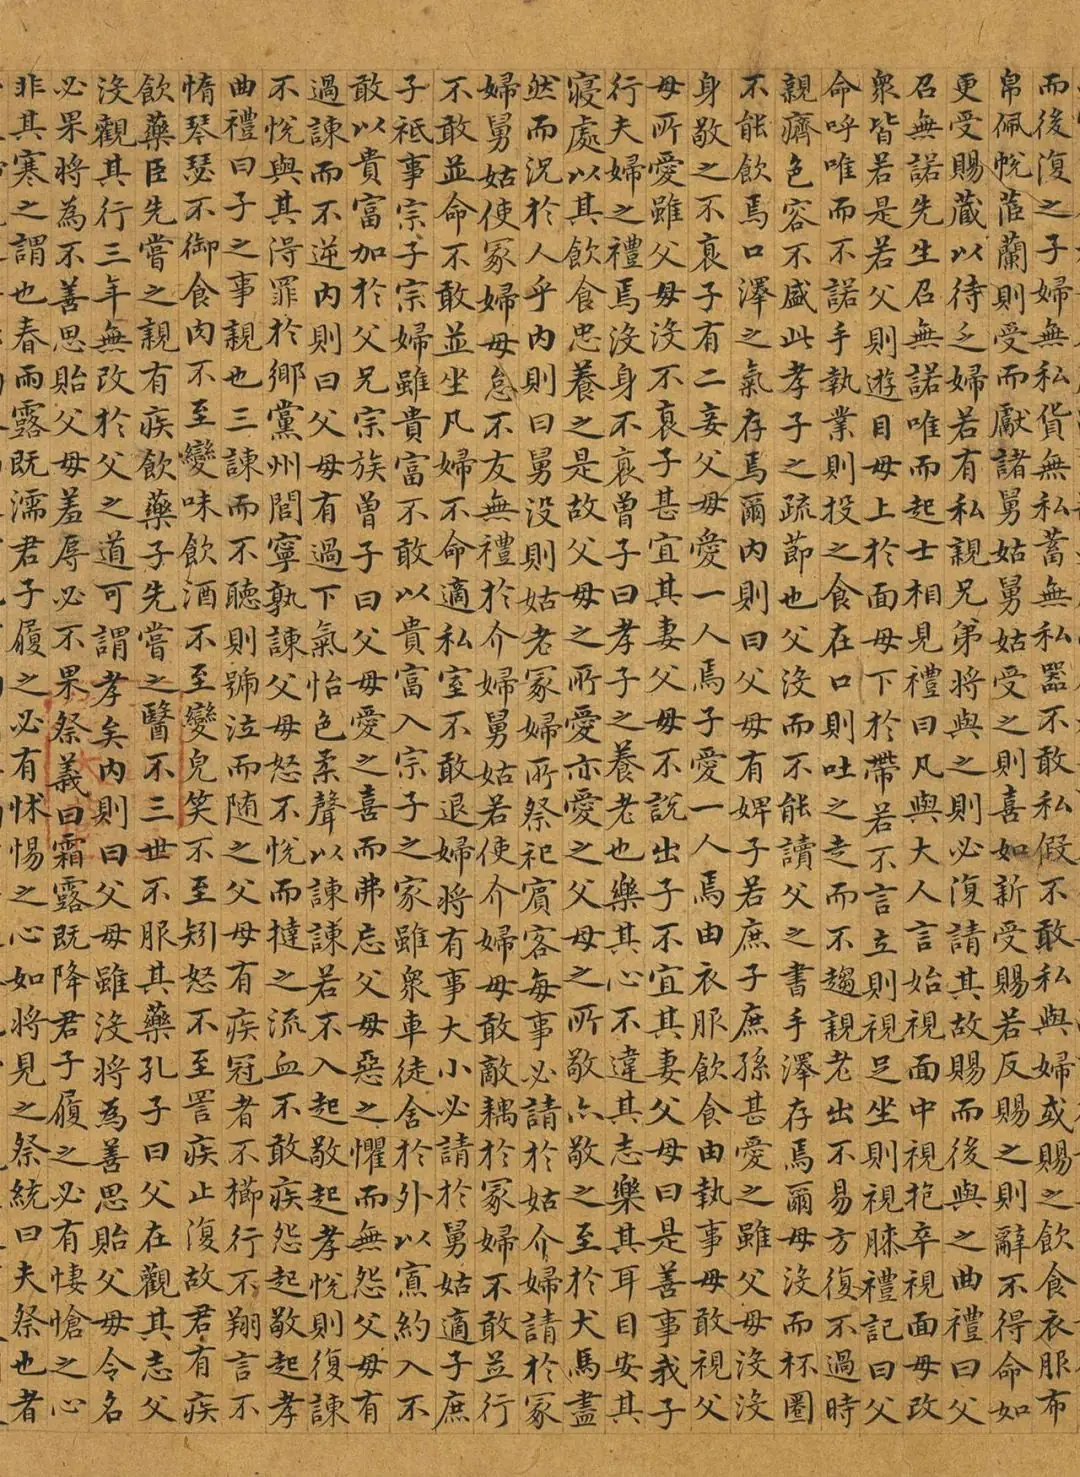 而後復之子婦無私貨無私蓄無私器不敢私假不敢私與婦或賜之飲食衣服布
帛佩帨茝蘭則受而獻諸舅姑舅姑受之則喜如新受賜若反賜之則辭不得命如
更受賜藏以待乏婦若有私親兄弟將與之則必復請其故賜而後與之曲禮曰父
召無諾先生召無諾唯而起士相見禮曰凡與大人言始視面中視抱卒視面毋改
衆皆若是若父則遊目毋上於面毋下於帶若不言立則視足坐則視膝禮記曰父
命呼唯而不諾手執業則投之食在口則吐之走而不趨親老出不易方復不過時
親癠色容不盛此孝子之疏節也父沒而不能讀父之書手澤存焉爾母沒而杯圈
不能飲焉口澤之氣存焉爾內則曰父母有婢子若庶子庶孫甚愛之雖父母沒沒
身敬之不衰子有二妾父母愛一人焉子愛一人焉由衣服飲食由執事毋敢視父
母所愛雖父母沒不衰子甚宜其妻父母不說出子不宜其妻父母曰是善事我子
行夫婦之禮焉沒身不衰曾子曰孝子之養老也樂其心不違其志樂其耳目安其
寢處以其飲食忠養之是故父母之所愛亦愛之父母之所敬亦敬之至於犬馬盡
然而況於人乎內則曰舅沒則姑老冢婦所祭祀賓客每事必請於姑介婦請於冢
婦舅姑使冢婦毋怠不友無禮於介婦舅姑若使介婦毋敢敵耦於冢婦不敢並行
不敢並命不敢並坐凡婦不命適私室不敢退婦將有事大小必請於舅姑適子庶
子祗事宗子宗婦雖貴富不敢以貴富入宗子之家雖衆車徒舍於外以寡約入不
敢以貴富加於父兄宗族曾子曰父母愛之喜而弗忘父母惡之懼而無怨父母有
過諫而不逆內則曰父母有過下氣怡色柔聲以諫諫若不入起敬起孝悅則復諫
不悅與其得罪於鄉黨州閭寧孰諫父母怒不悅而撻之流血不敢疾怨起敬起孝
曲禮曰子之事親也三諫而不聽則號泣而随之父母有疾冠者不櫛行不翔言不
惰琴瑟不御食肉不至變味飲酒不至變皃笑不至矧怒不至詈疾止復故君有疾
飲藥臣先嘗之親有疾飲藥子先嘗之醫不三世不服其藥孔子曰父在觀其志父
沒觀其行三年無改於父之道可謂孝矣內則曰父母雖沒將為善思貽父母令名
必果將為不善思貽父母羞辱必不果祭義曰霜露既降君子履之必有悽愴之心
非其寒之謂也春雨露既濡君子履之必有怵惕之心如將見之祭統曰夫祭也者